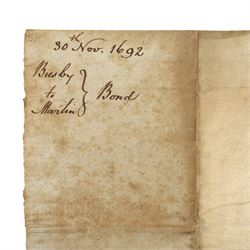 30th Nov. 1692
Busby
to } Bond
Martin